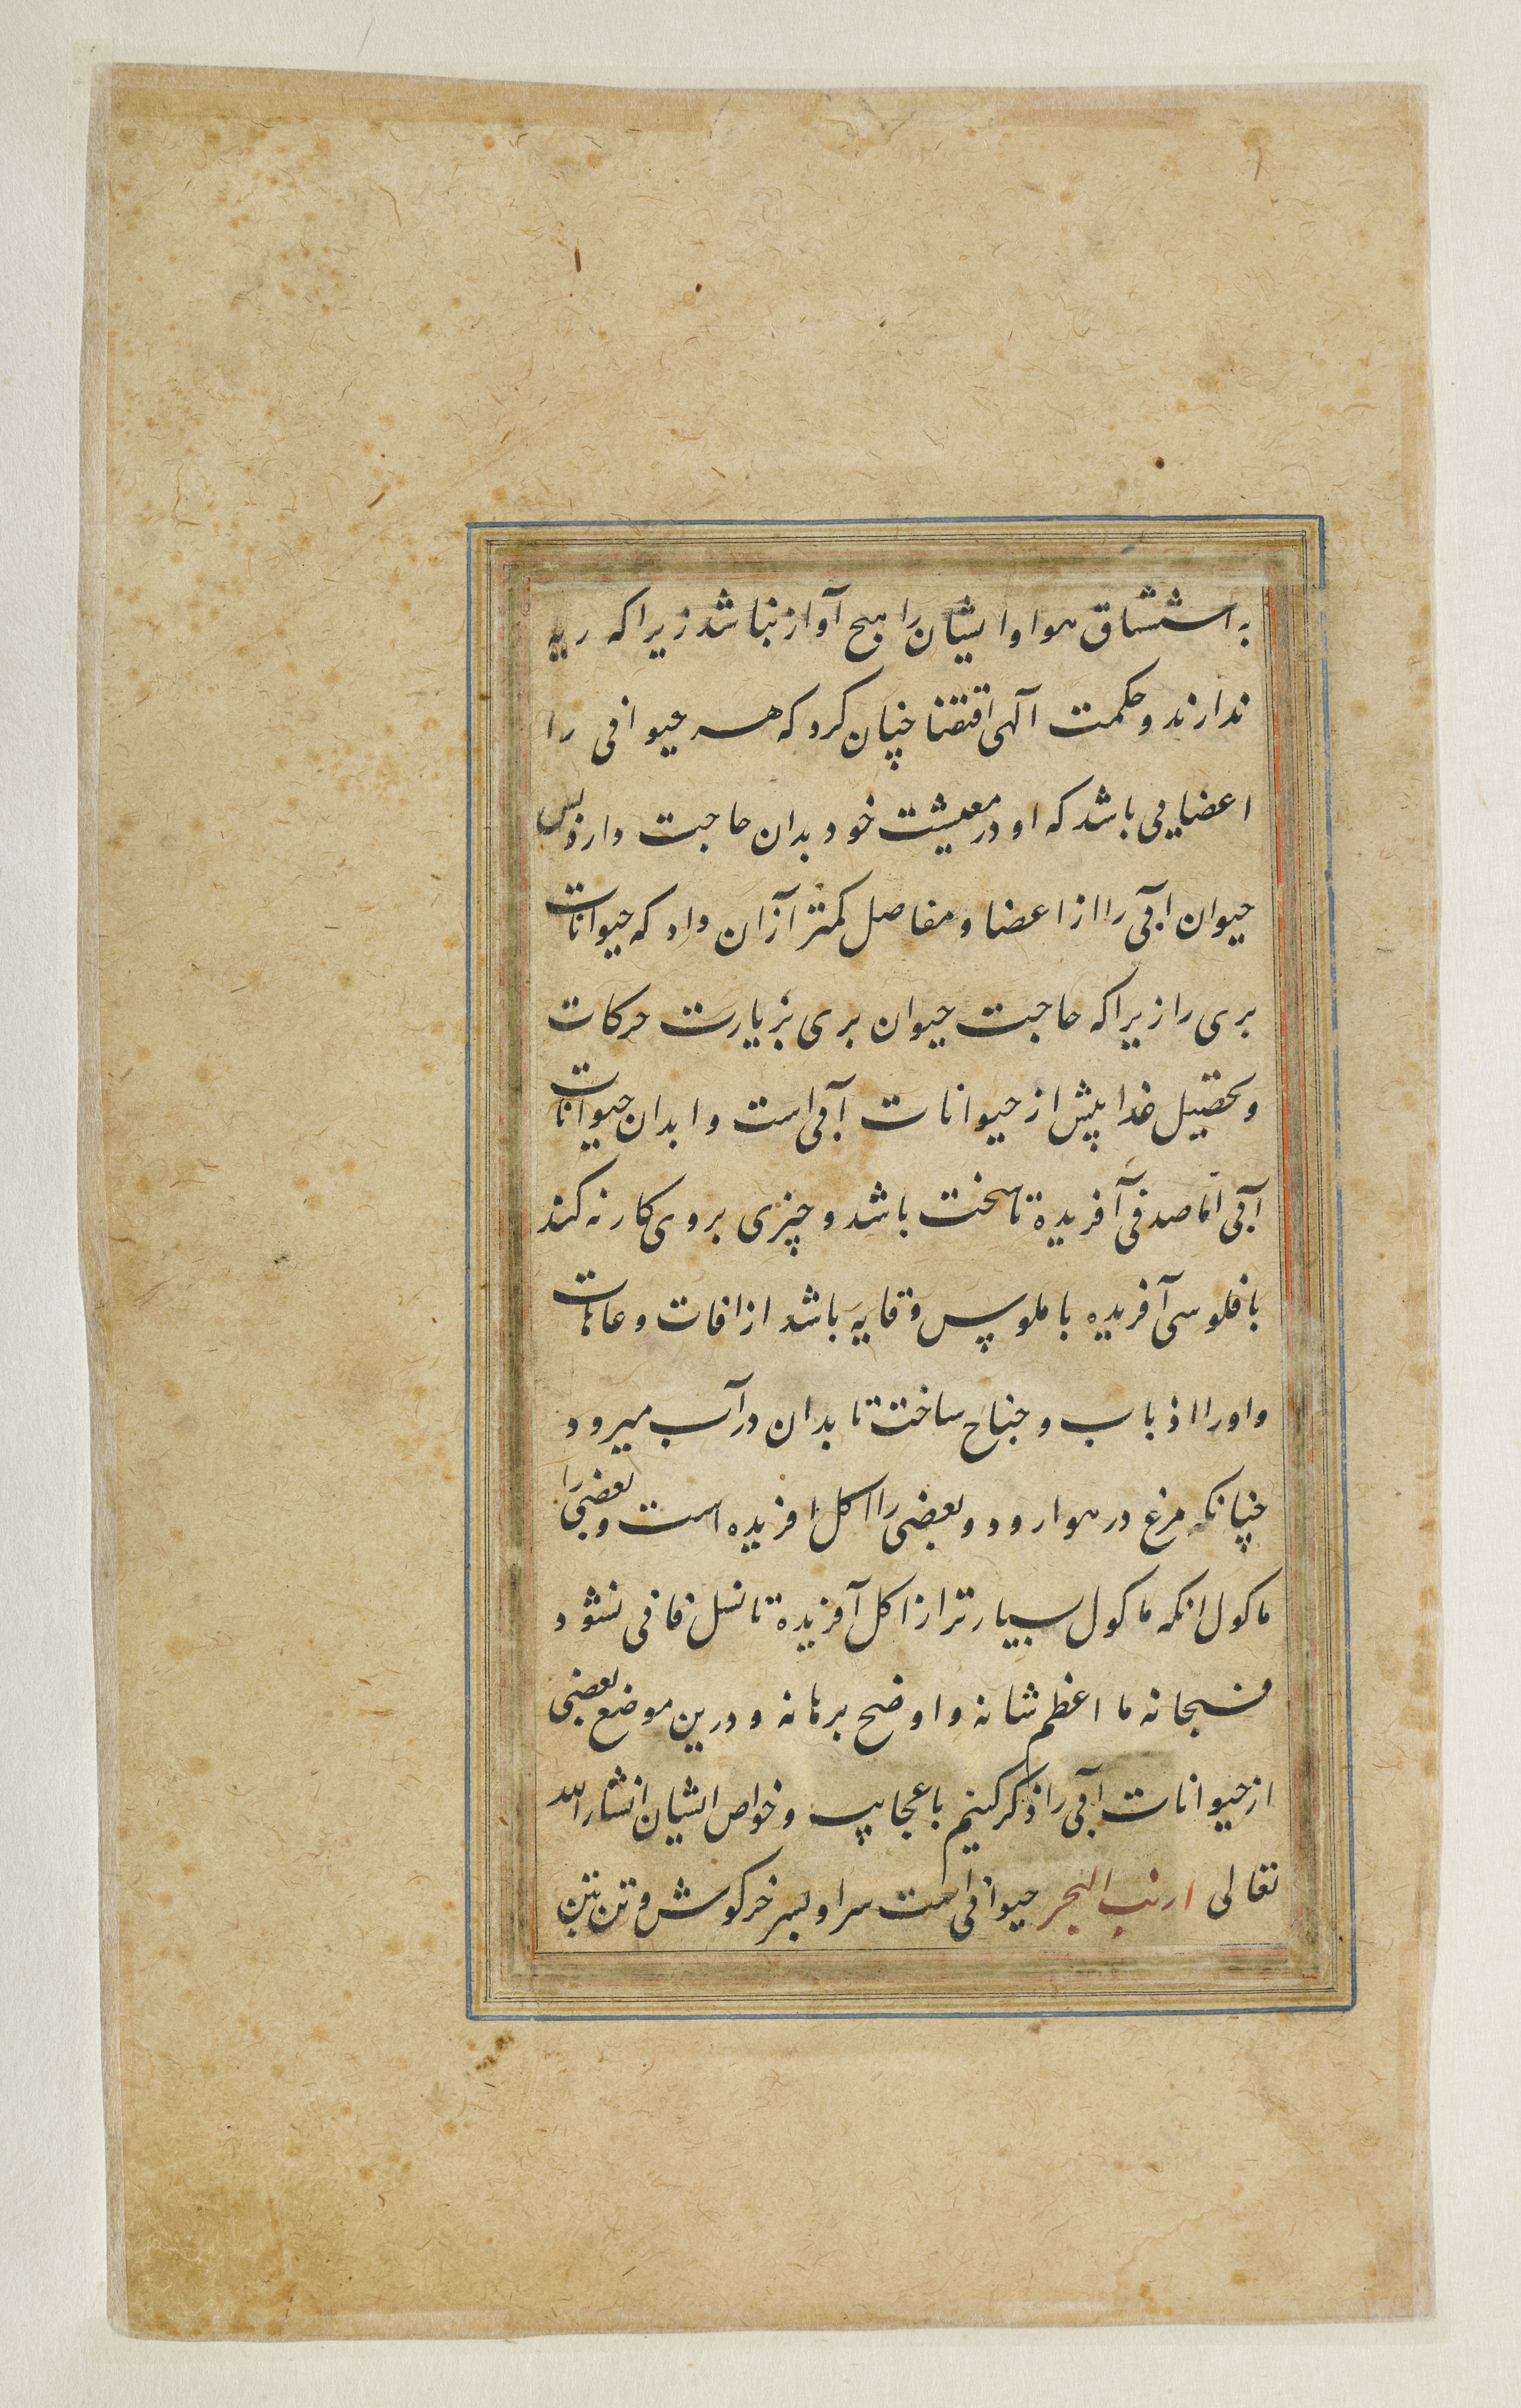 به استنشاق هوا و ایشان را هیچ آواز نباشد زیرا که ریه
ندارند و حکمت آلهی اقتضا چنان کرد که هر حیوانی را
اعضایی باشد که او در معیشت خود بدان حاجت دارد پس
حیوان آبی را از اعضا و مفاصل کمتر از آن داد که حیوانات
بری را زیرا که حاجت حیوان بری بزیارت حرکات
و تحصیل غدا بیش از حیوانات آبی است و ابدان حیوانات
آبی اما صدفی آفریده تا سخت باشد و چیزی بروی کار نه کند
با فلوسی آفریده با ملوپس وقایه باشد از افات و عاهات
و او را اذباب و جناح ساخت تا بدان در آب میرود
چنانکه مرغ در هوا رود و بعضی را اکل افریده است و بعضی را
ماکول انکه ماکول بسیارتر از اکل آفریده تا نسل فانی نشود
فسبحانه ما اعظم شانه و اوضح برهانه و درین موضع بعضی
از حیوانات آبی را ذکر کنیم با عجایب و خواص ایشان انشاالله
تعالی ارنب البحر حیوانی است سر او بسر خرکوش و تن بتن